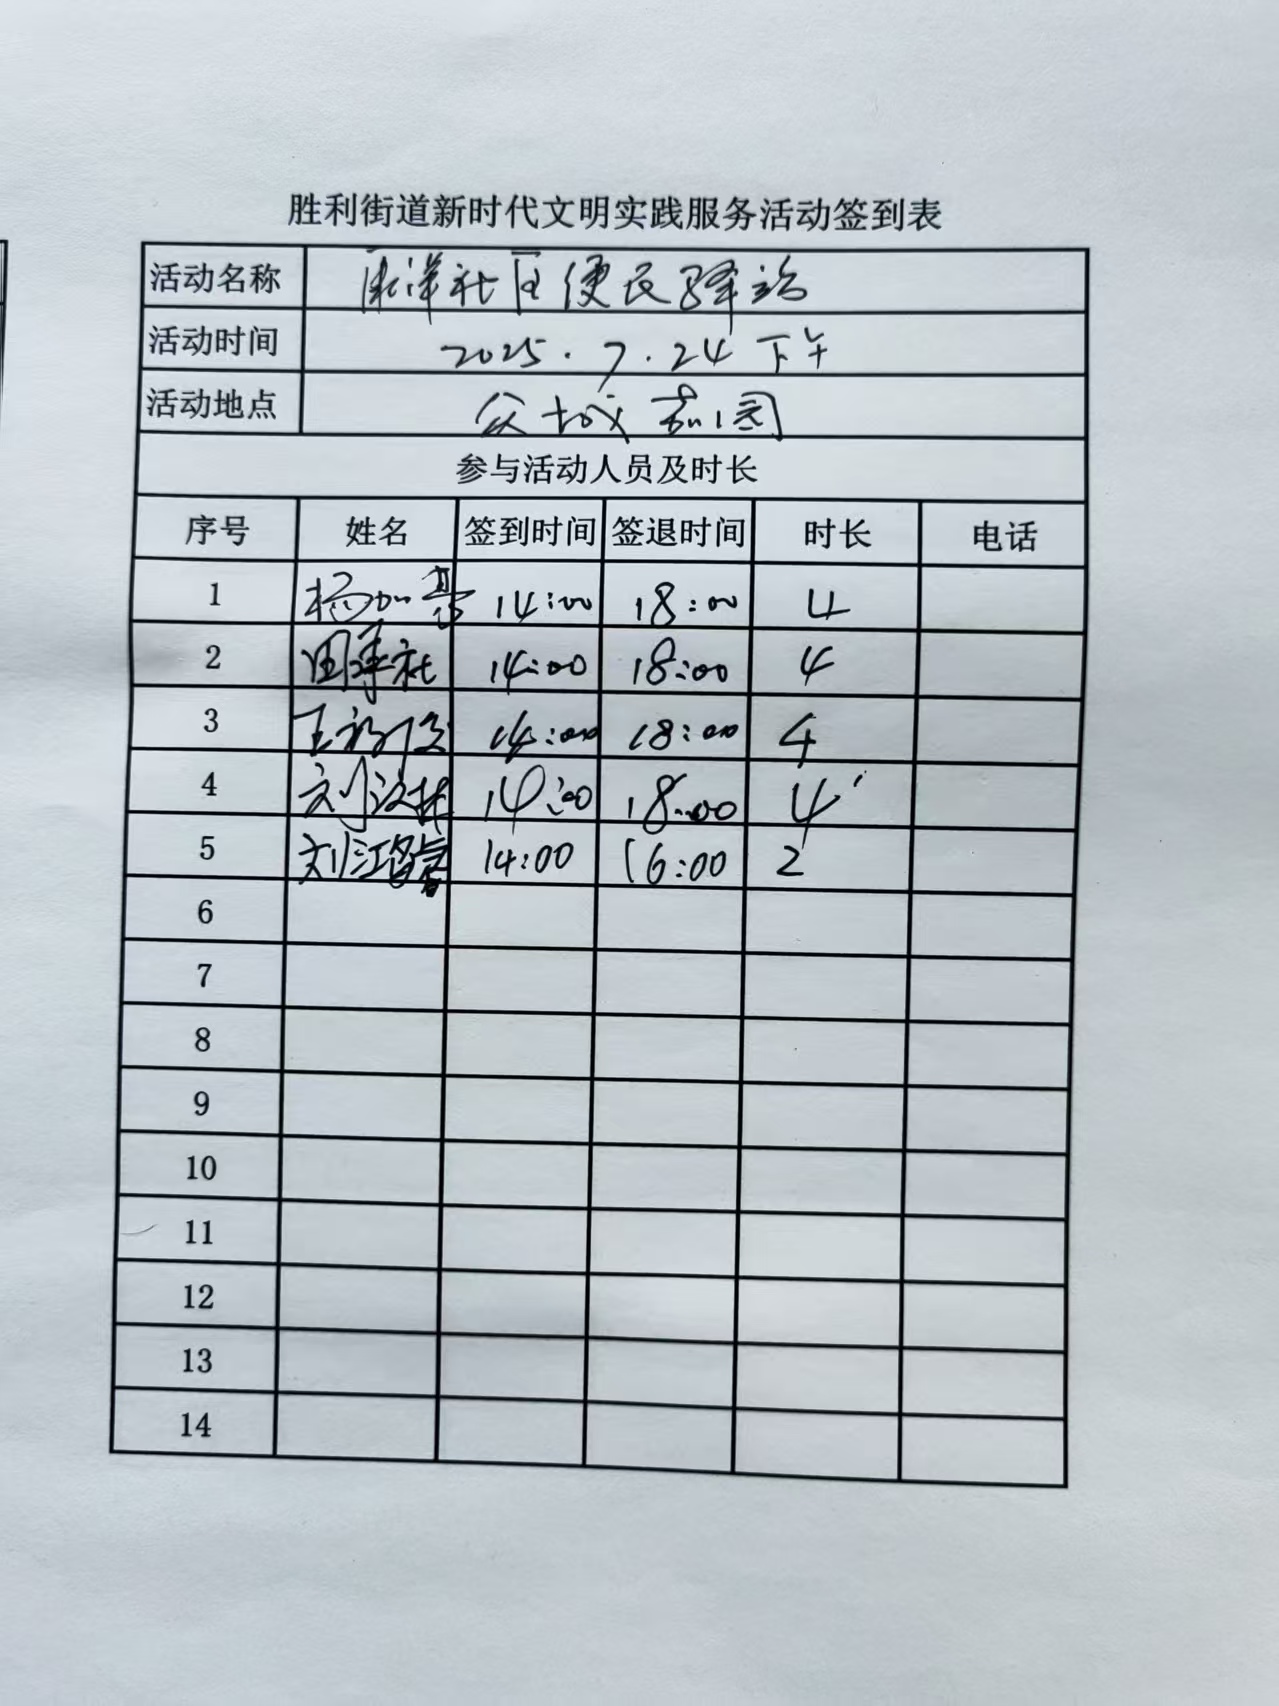 胜利街道新时代文明实践服务活动签到表
活动名称 康洋社区便民驿站
活动时间 2025.7.24下午
活动地点 众城嘉园
参与活动人员及时长
序号 姓名 签到时间 签退时间 时长 电话
1 杨加 14:00 18:00 4
2 田承社 14:00 18:00 4
3 王 14:00 18:00 4
4 刘汉林 14:00 18:00 4
5 刘江 14:00 16:00 2
6
7
8
9
10
11
12
13
14